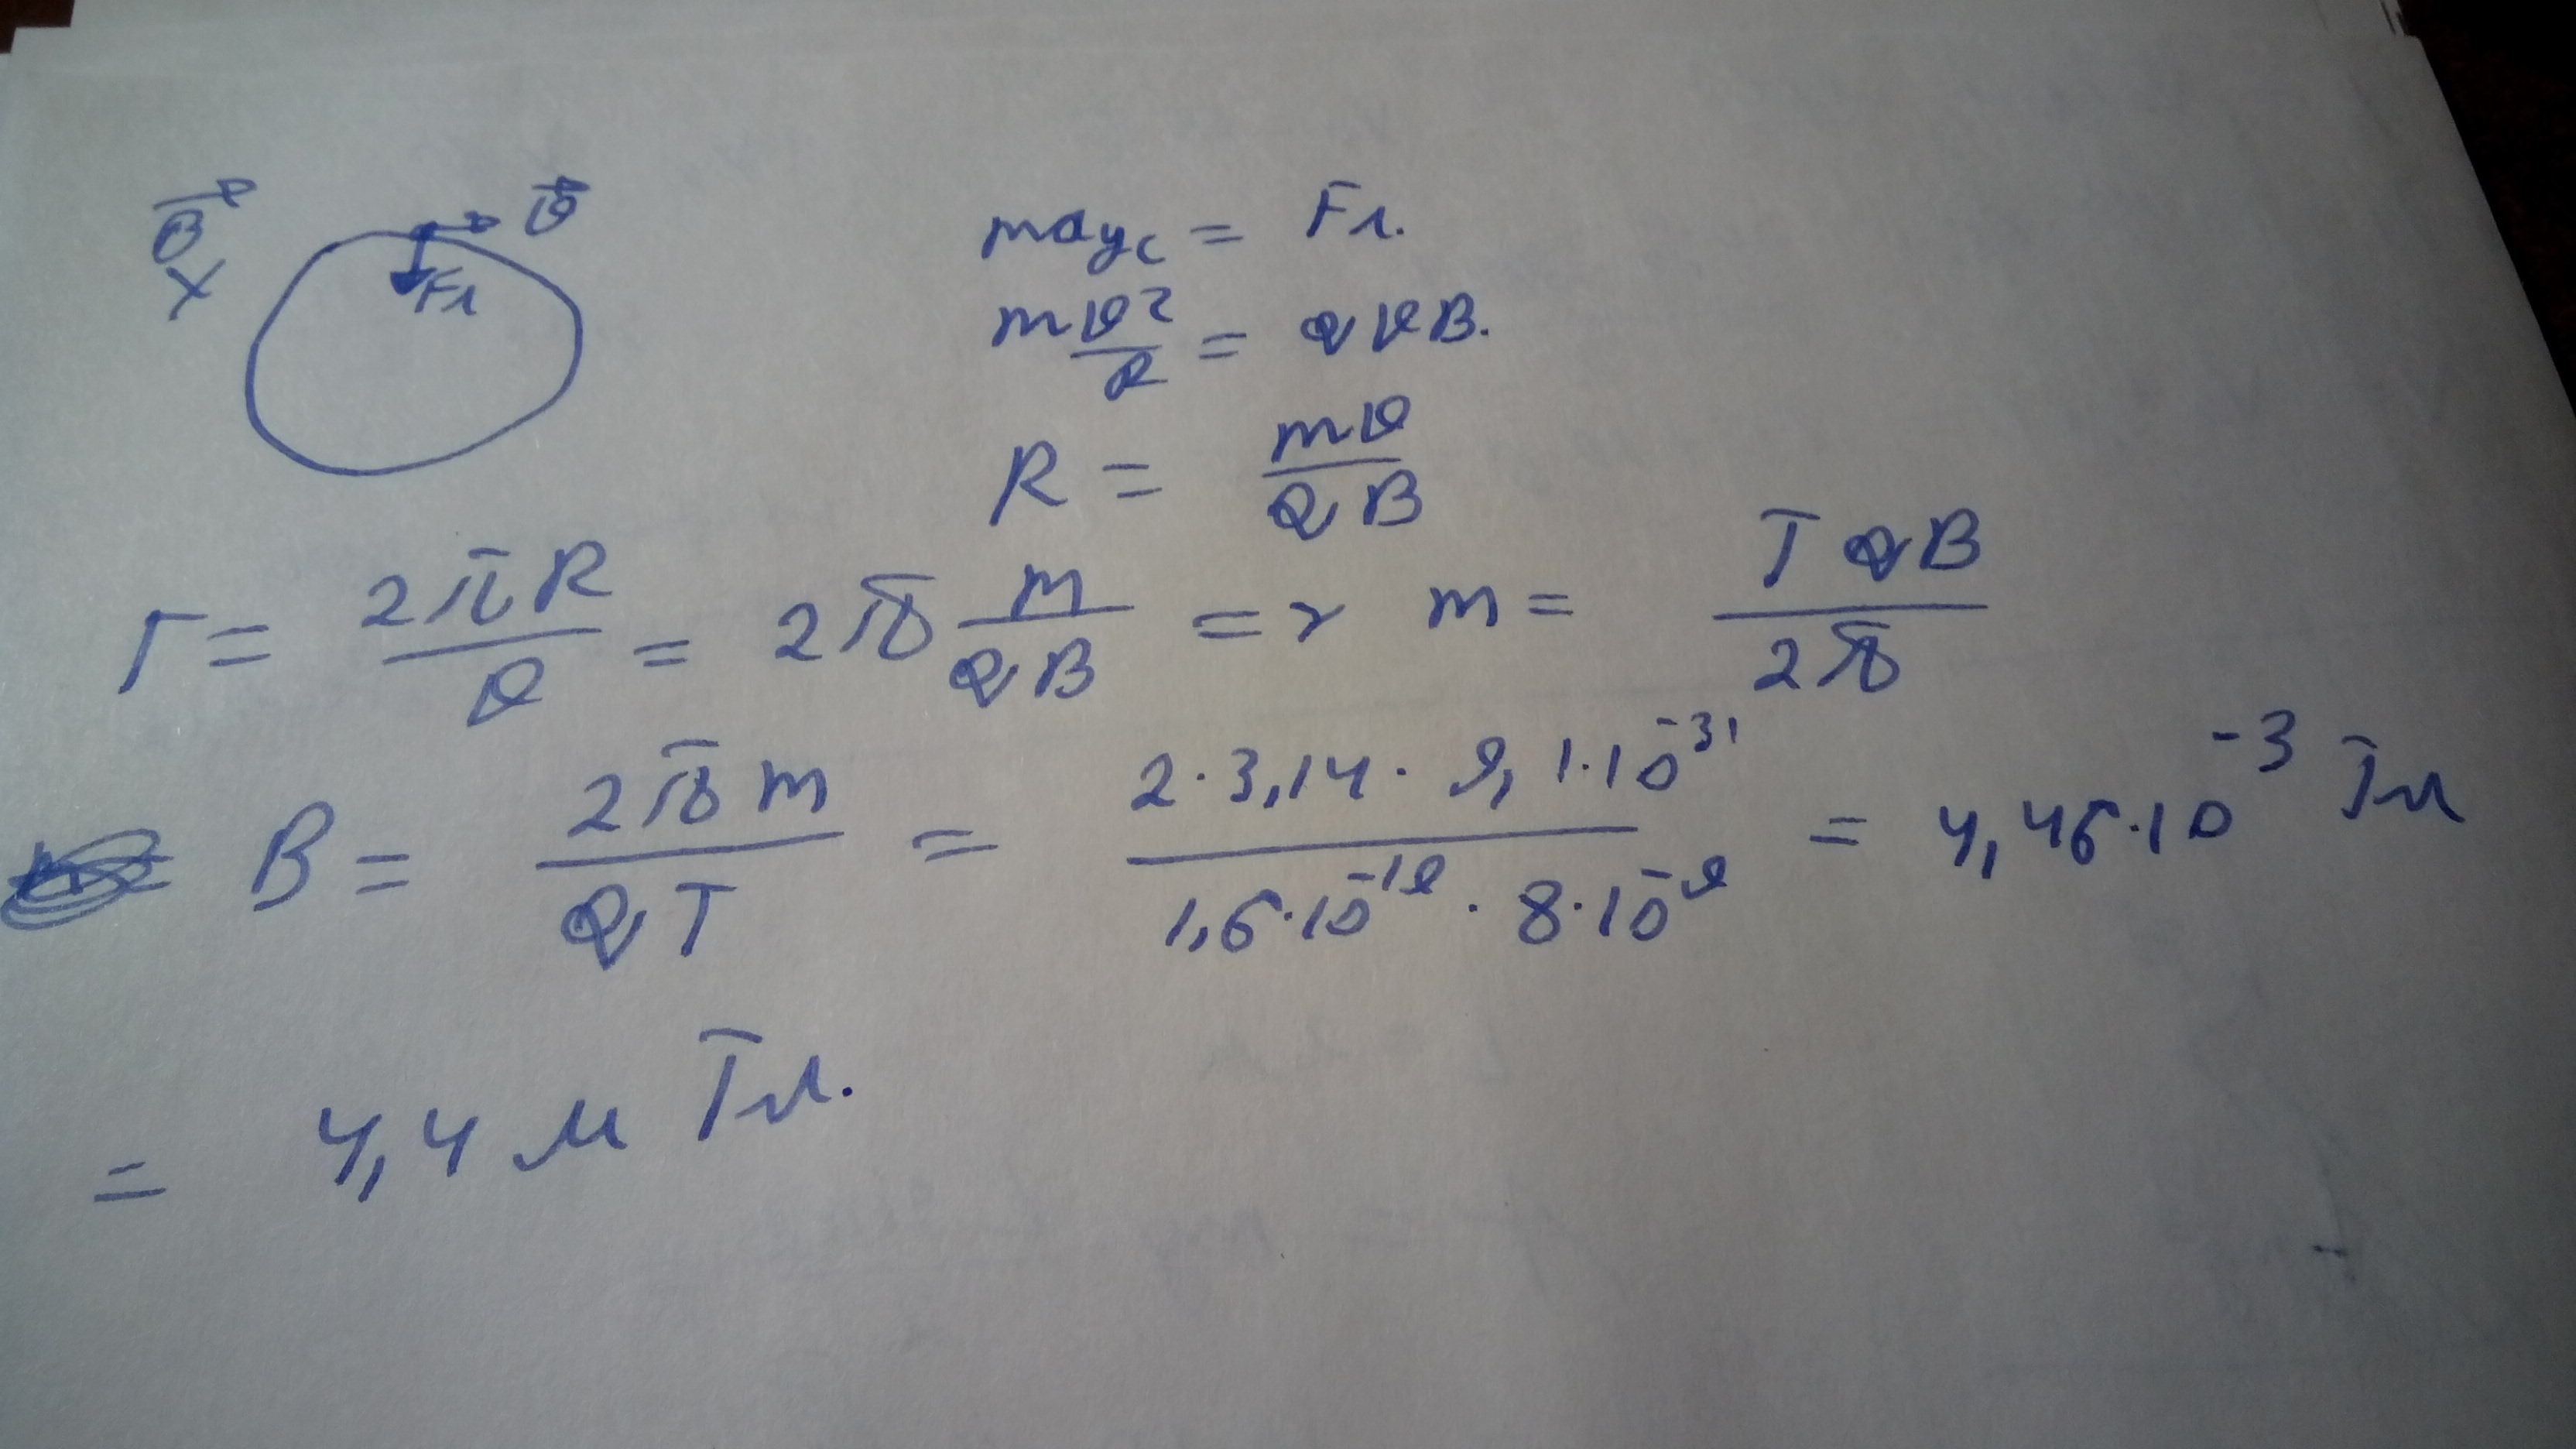 B⃗ v⃗
x Fл
maцс = Fл.
mv²/R = qvB.
R = mv/qB
T = 2πR/v = 2π m/qB => m = TqB/2π
B = 2πm/qT = 2·3,14·9,1·10⁻³¹/1,6·10⁻¹⁹·8·10⁻⁹ = 4,46·10⁻³ Тл
= 4,4 м Тл.